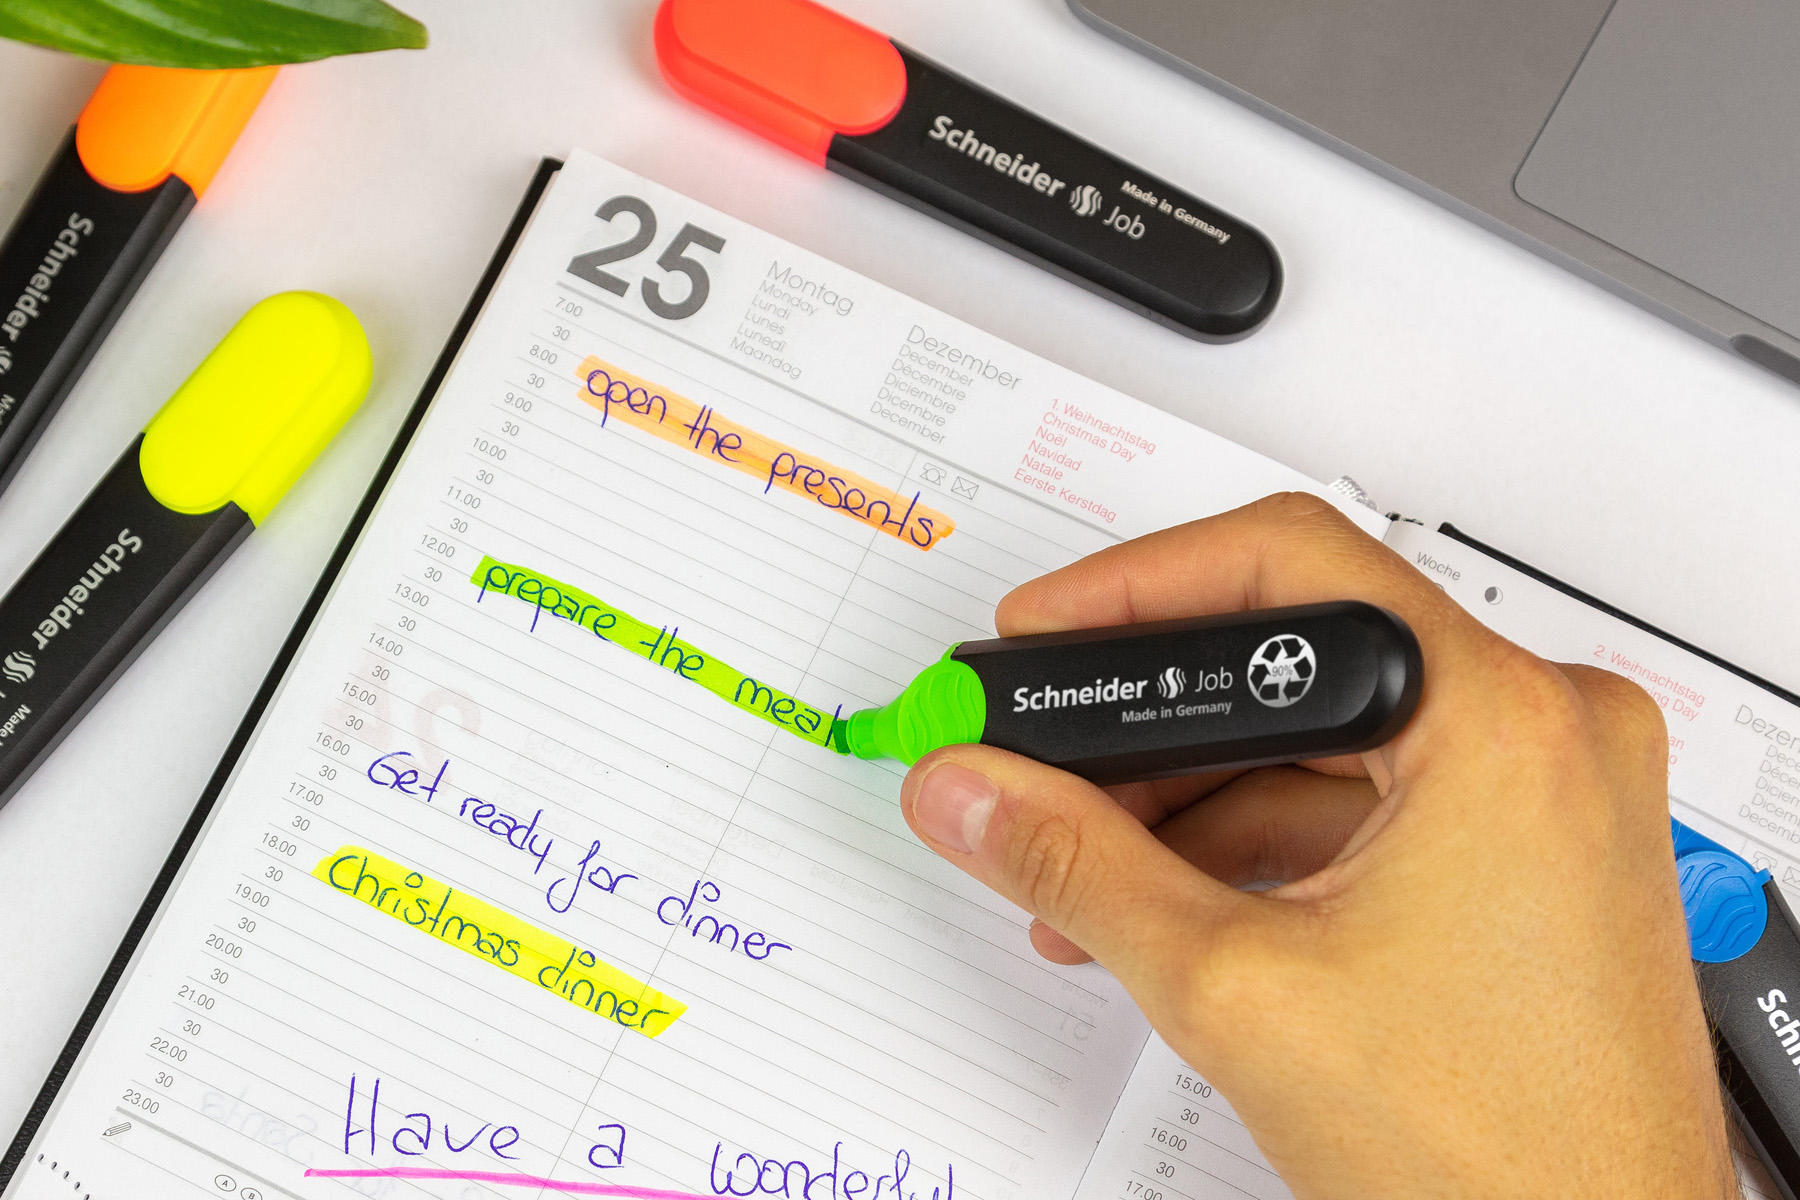 Schneider Job
Made in Germany
Schneider
Schneider
Made
25
Montag
Monday
Lundi
Lunes
Lunedì
Maandag
Dezember
December
Décembre
Diciembre
Dicembre
December
1. Weihnachtstag
Christmas Day
Noël
Navidad
Natale
Eerste Kerstdag
7.00
30
8.00
30
9.00
30
10.00
30
11.00
30
12.00
30
13.00
30
14.00
30
15.00
30
16.00
30
17.00
30
18.00
30
19.00
30
20.00
30
21.00
30
22.00
30
23.00
open the presents
prepare the meal
Get ready for dinner
Christmas dinner
Have a wonderful
A B
Schneider Job
Made in Germany
90%
Woche
2. Weihnachtstag
Day
15.00
30
16.00
30
17.00